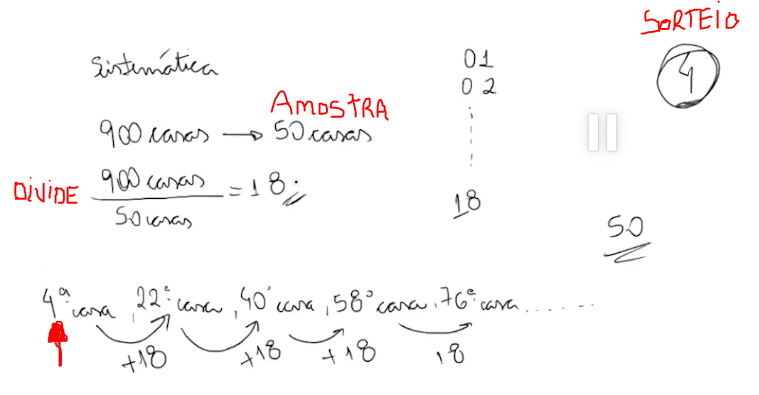 SORTEIO
4
Sistemática
01
02
18
AMOSTRA
900 casas → 50 casas
DIVIDE
900 casas
50 casas
= 18
50
4ª casa, 22ª casa, 40ª casa, 58ª casa, 76ª casa......
+18 +18 +18 18